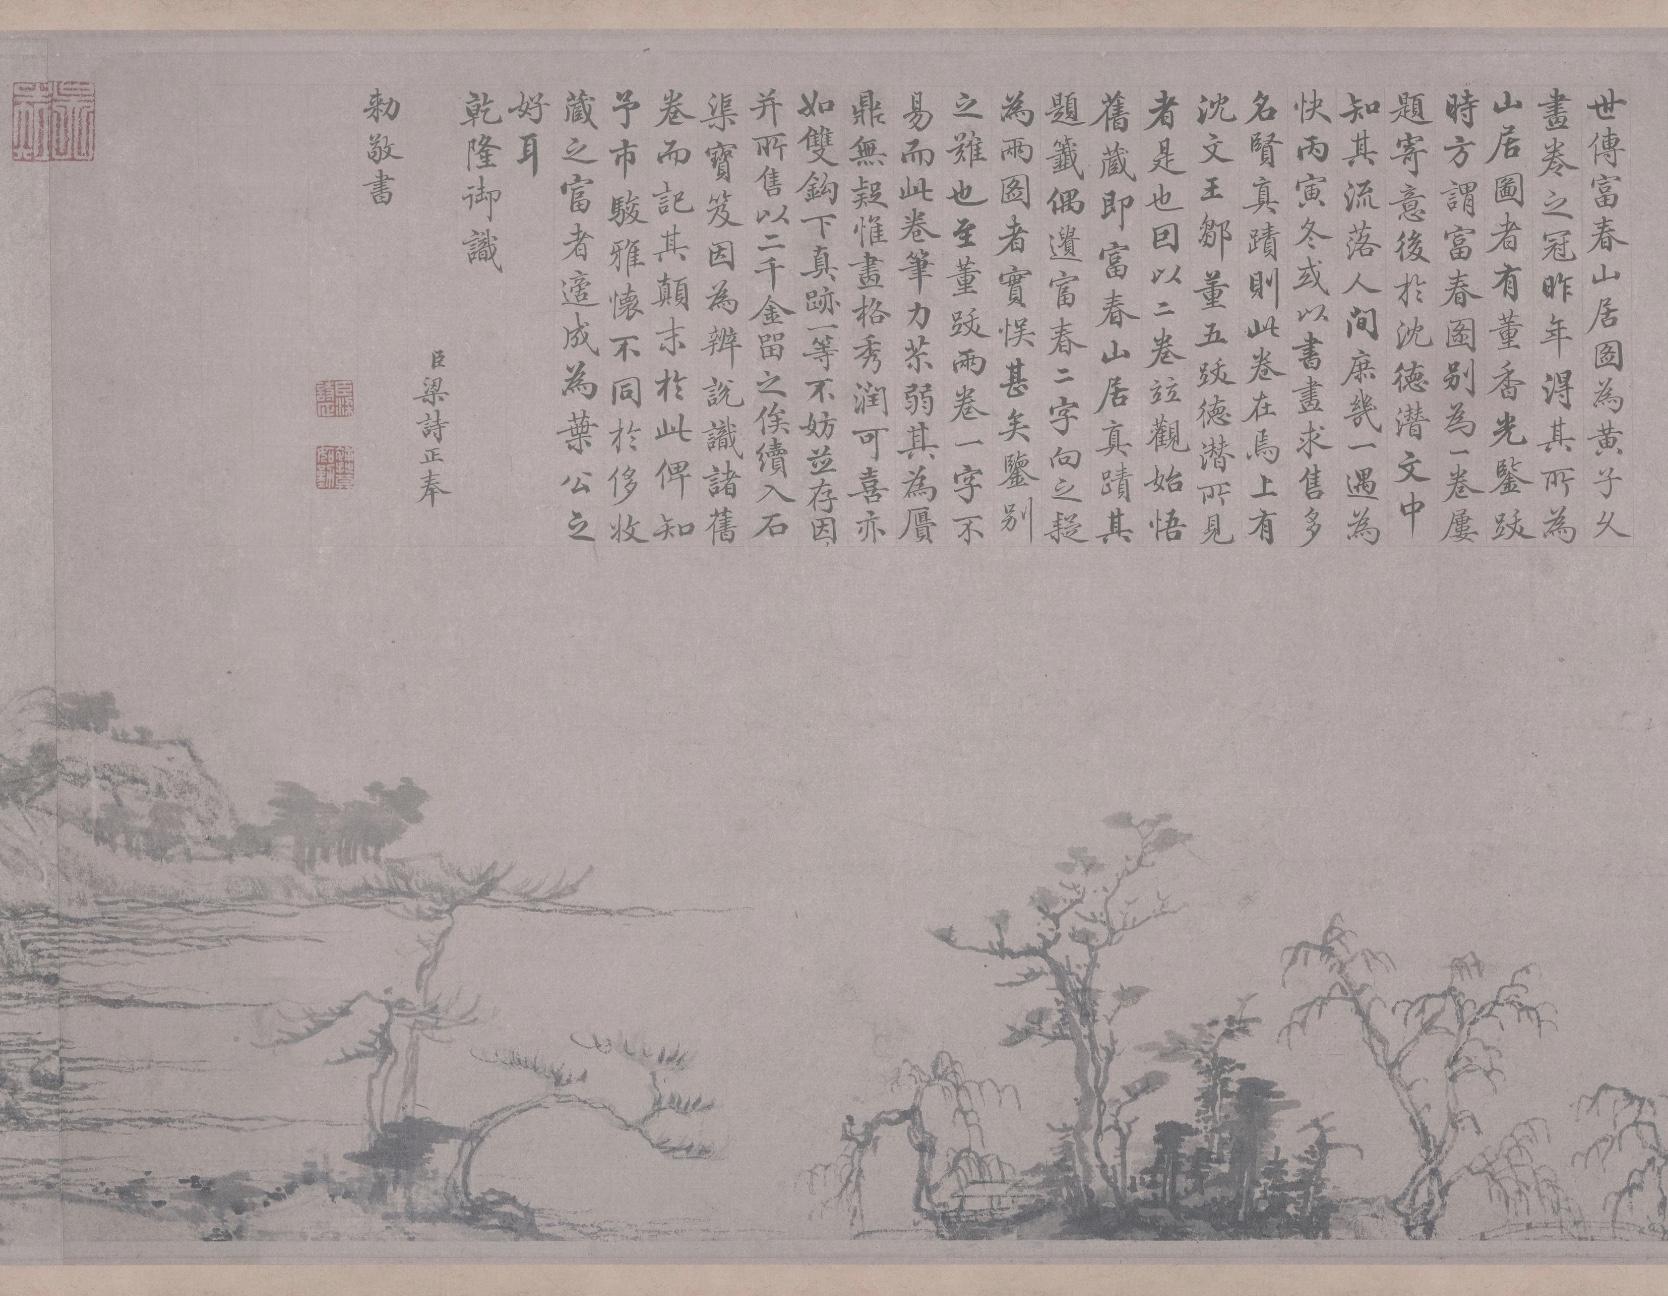 世傳富春山居圖為黃子久
畫卷之冠昨年得其所為
山居圖者有董香光鑒跋
時方謂富春圖别為一卷屢
題寄意後於沈德潛文中
知其流落人間庶幾一遇為
快丙寅冬或以書畫求售多
名賢真蹟則此卷在焉上有
沈文王鄒董五跋德潛所見
者是也因以二卷竝觀始悟
舊藏即富春山居真蹟其
題籤偶遺富春二字向之疑
為兩圖者實悞甚矣鑒别
之難也至董跋兩卷一字不
易而此卷筆力苶弱其為贗
鼎無疑惟畫格秀潤可喜亦
如雙鈎下真跡一等不妨並存因
并所售以二千金留之俟續入石
渠寶笈因為辨說識諸舊
卷而記其顛末於此俾知
予市駿雅懷不同於侈收
藏之富者適成為葉公之
好耳
乾隆御識
臣梁詩正奉
勅敬書